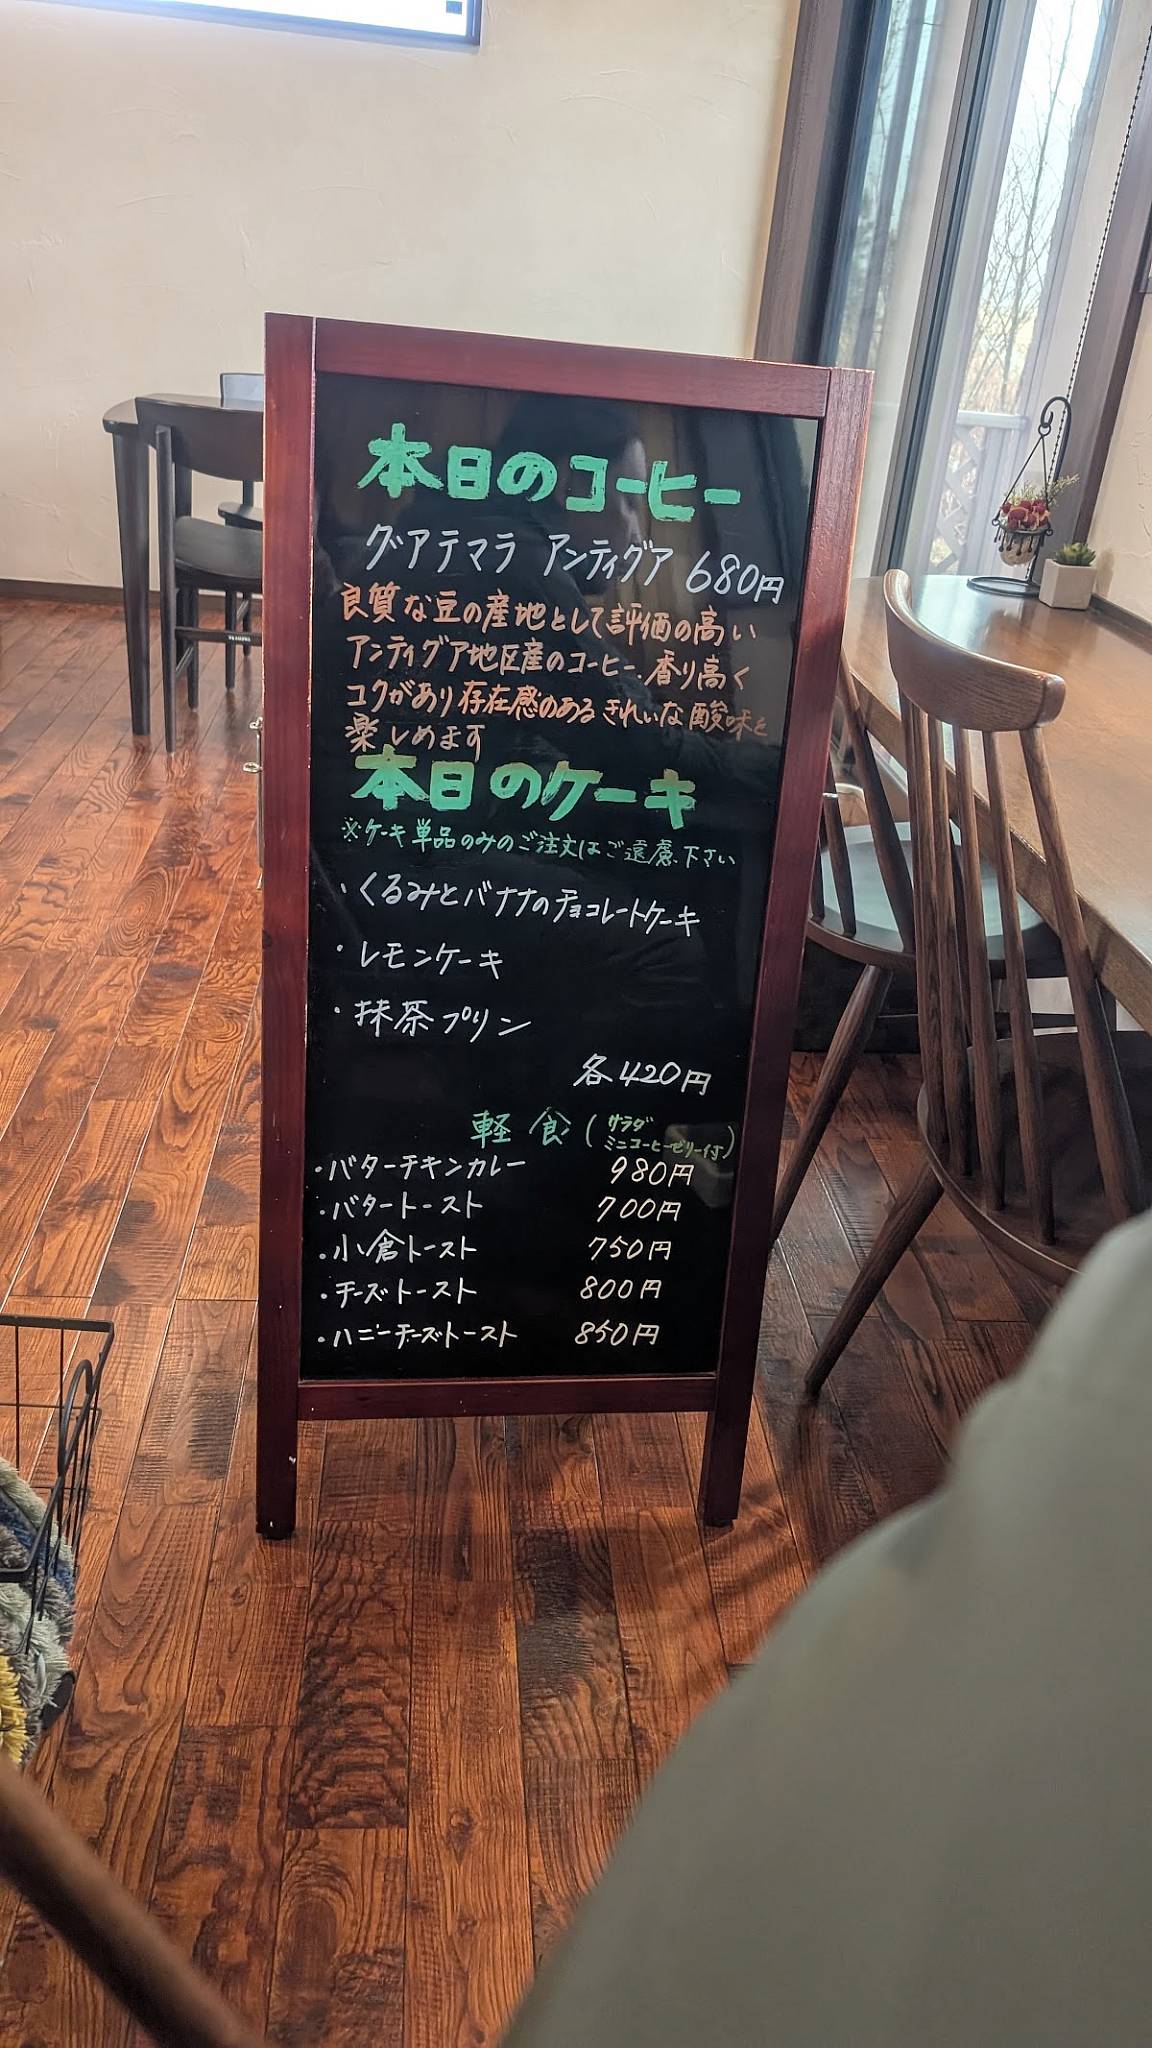 本日のコーヒー
グアテマラ アンティグア 680円
良質な豆の産地として評価の高い
アンティグア地区産のコーヒー、香り高く
コクがあり存在感のあるきれいな酸味を
楽しめます
本日のケーキ
※ケーキ単品のみのご注文はご遠慮下さい
・くるみとバナナのチョコレートケーキ
・レモンケーキ
・抹茶プリン
各420円
軽食(サラダ
ミニコーヒーゼリー付)
・バターチキンカレー 980円
・バタートースト 700円
・小倉トースト 750円
・チーズトースト 800円
・ハニーチーズトースト 850円